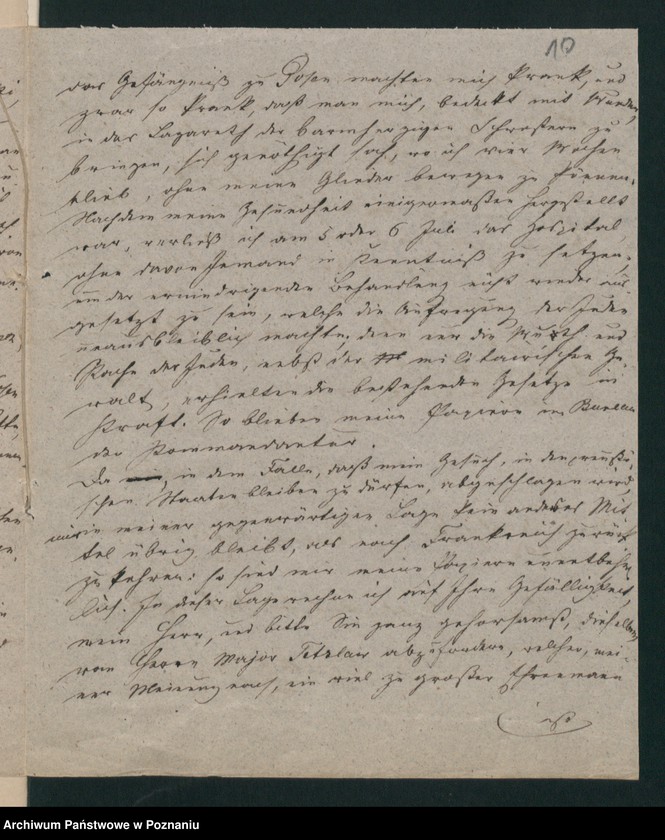 10
das Gefängniß zu Posen machten mich krank, und
zwar so krank, daß man mich, bedeckt mit Wunden,
in das Lazareth der barmherzigen Schwestern zu
bringen, sich genöthigt sah, wo ich vier Wochen
blieb, ohne meine Glieder bewegen zu können.
Nachdem meine Gesundheit einigermaßen hergestellt
war, verließ ich am 5 oder 6 Juli das Hospital,
ohne davon Jemand in Kenntniß zu setzen,
um der erniedrigenden Behandlung nicht wieder aus-
gesetzt zu sein, welche die Aufregung der Juden
unausbleiblich machte; denn nur die Wuth und
Rache der Juden, nebst der militairischen Ge-
walt, erhielten die bestehenden Gesetze in
Kraft. So blieben meine Papiere im Bureau
der Kommandantur.
Da, in dem Falle, daß mein Gesuch, in den preußi-
schen Staaten bleiben zu dürfen, abgeschlagen wird,
mir in meiner gegenwärtigen Lage kein anderes Mit-
tel übrig bleibt, als nach Frankreich zurück
zu kehren: so sind mir meine Papiere unentbehr-
lich. In dieser Lage rechne ich auf Ihre Gefälligkeit,
mein Herr, und bitte Sie ganz gehorsamst, dieselben
von Herrn Major Tetzlaw abzufordern, welcher, mei-
ner Meinung nach, ein viel zu großer Ehrenmann
ist
Archiwum Państwowe w Poznaniu